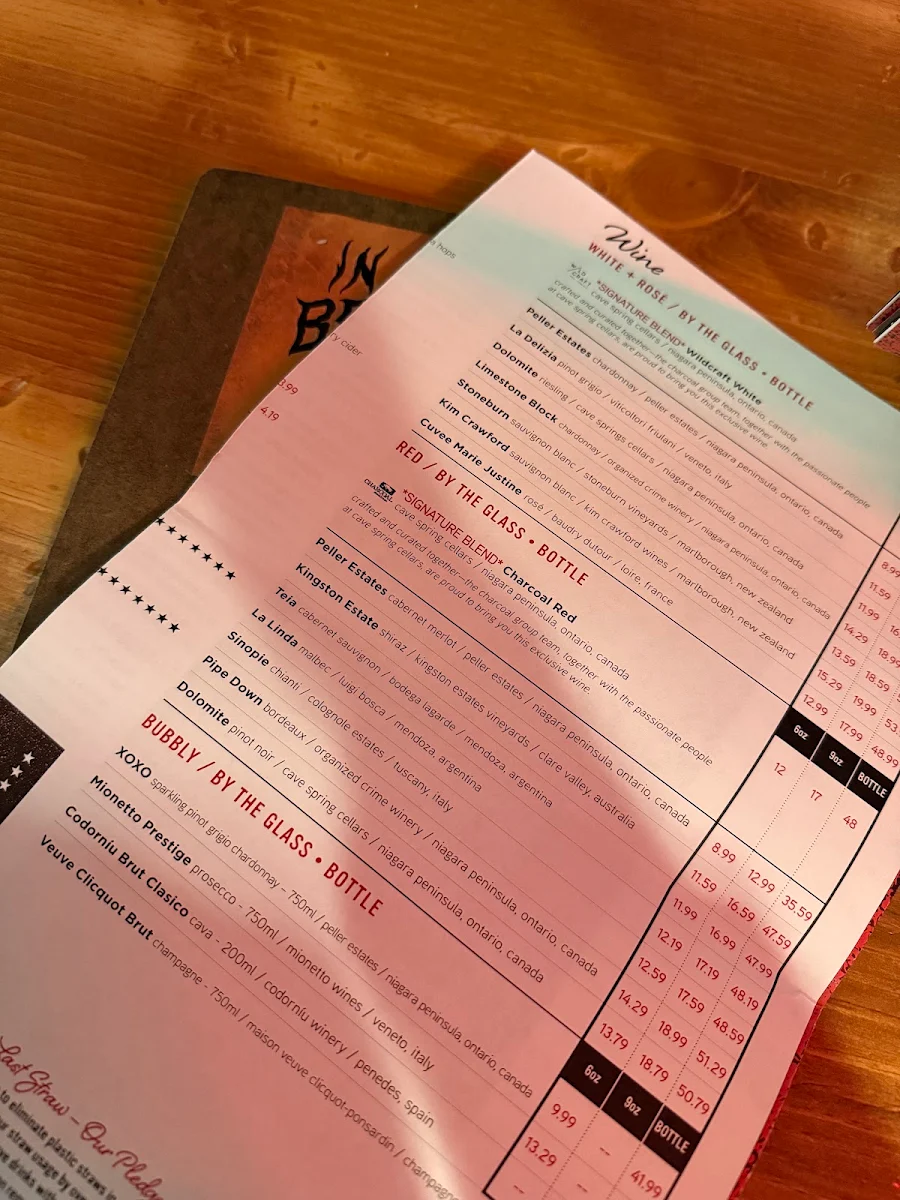 IN
BE
hops
ry cider
3.99
4.19
Wine
WHITE + ROSÉ / BY THE GLASS • BOTTLE
*SIGNATURE BLEND* Wildcraft White
cave spring cellars / niagara peninsula, ontario, canada
crafted and curated together—the charcoal group team, together with the passionate people
at cave spring cellars, are proud to bring you this exclusive wine.
Peller Estates chardonnay / peller estates / niagara peninsula, ontario, canada 8.99
La Delizia pinot grigio / viticoltori friulani / veneto, italy 11.59
Dolomite riesling / cave springs cellars / niagara peninsula, ontario, canada 11.99 16
Limestone Block chardonnay / organized crime winery / niagara peninsula, ontario, canada 14.29 18.99
Stoneburn sauvignon blanc / stoneburn vineyards / marlborough, new zealand 13.59 18.59
Kim Crawford sauvignon blanc / kim crawford wines / marlborough, new zealand 15.29 19.99 53.
Cuvee Marie Justine rosé / baudry dutour / loire, france 12.99 17.99 48.99
RED / BY THE GLASS • BOTTLE 6oz 9oz BOTTLE
CHARCOAL
*SIGNATURE BLEND* Charcoal Red 12 17 48
cave spring cellars / niagara peninsula, ontario, canada
crafted and curated together—the charcoal group team, together with the passionate people
at cave spring cellars, are proud to bring you this exclusive wine.
Peller Estates cabernet merlot / peller estates / niagara peninsula, ontario, canada 8.99 12.99 35.59
Kingston Estate shiraz / kingston estates vineyards / clare valley, australia 11.59 16.59 47.59
Teia cabernet sauvignon / bodega lagarde / mendoza, argentina 11.99 16.99 47.99
La Linda malbec / luigi bosca / mendoza, argentina 12.19 17.19 48.19
Sinopie chianti / colognole estates / tuscany, italy 12.59 17.59 48.59
Pipe Down bordeaux / organized crime winery / niagara peninsula, ontario, canada 14.29 18.99 51.29
Dolomite pinot noir / cave spring cellars / niagara peninsula, ontario, canada 13.79 18.79 50.79
BUBBLY / BY THE GLASS • BOTTLE 6oz 9oz BOTTLE
XOXO sparkling pinot grigio chardonnay - 750ml / peller estates / niagara peninsula, ontario, canada 9.99 -- 41.99
Mionetto Prestige prosecco - 750ml / mionetto wines / veneto, italy 13.29 --
Codorníu Brut Clasico cava - 200ml / codorníu winery / penedes, spain --
Veuve Clicquot Brut champagne - 750ml / maison veuve clicquot-ponsardin / champagne
Last Straw - Our Pledg
to eliminate plastic straws in
our straw usage by over